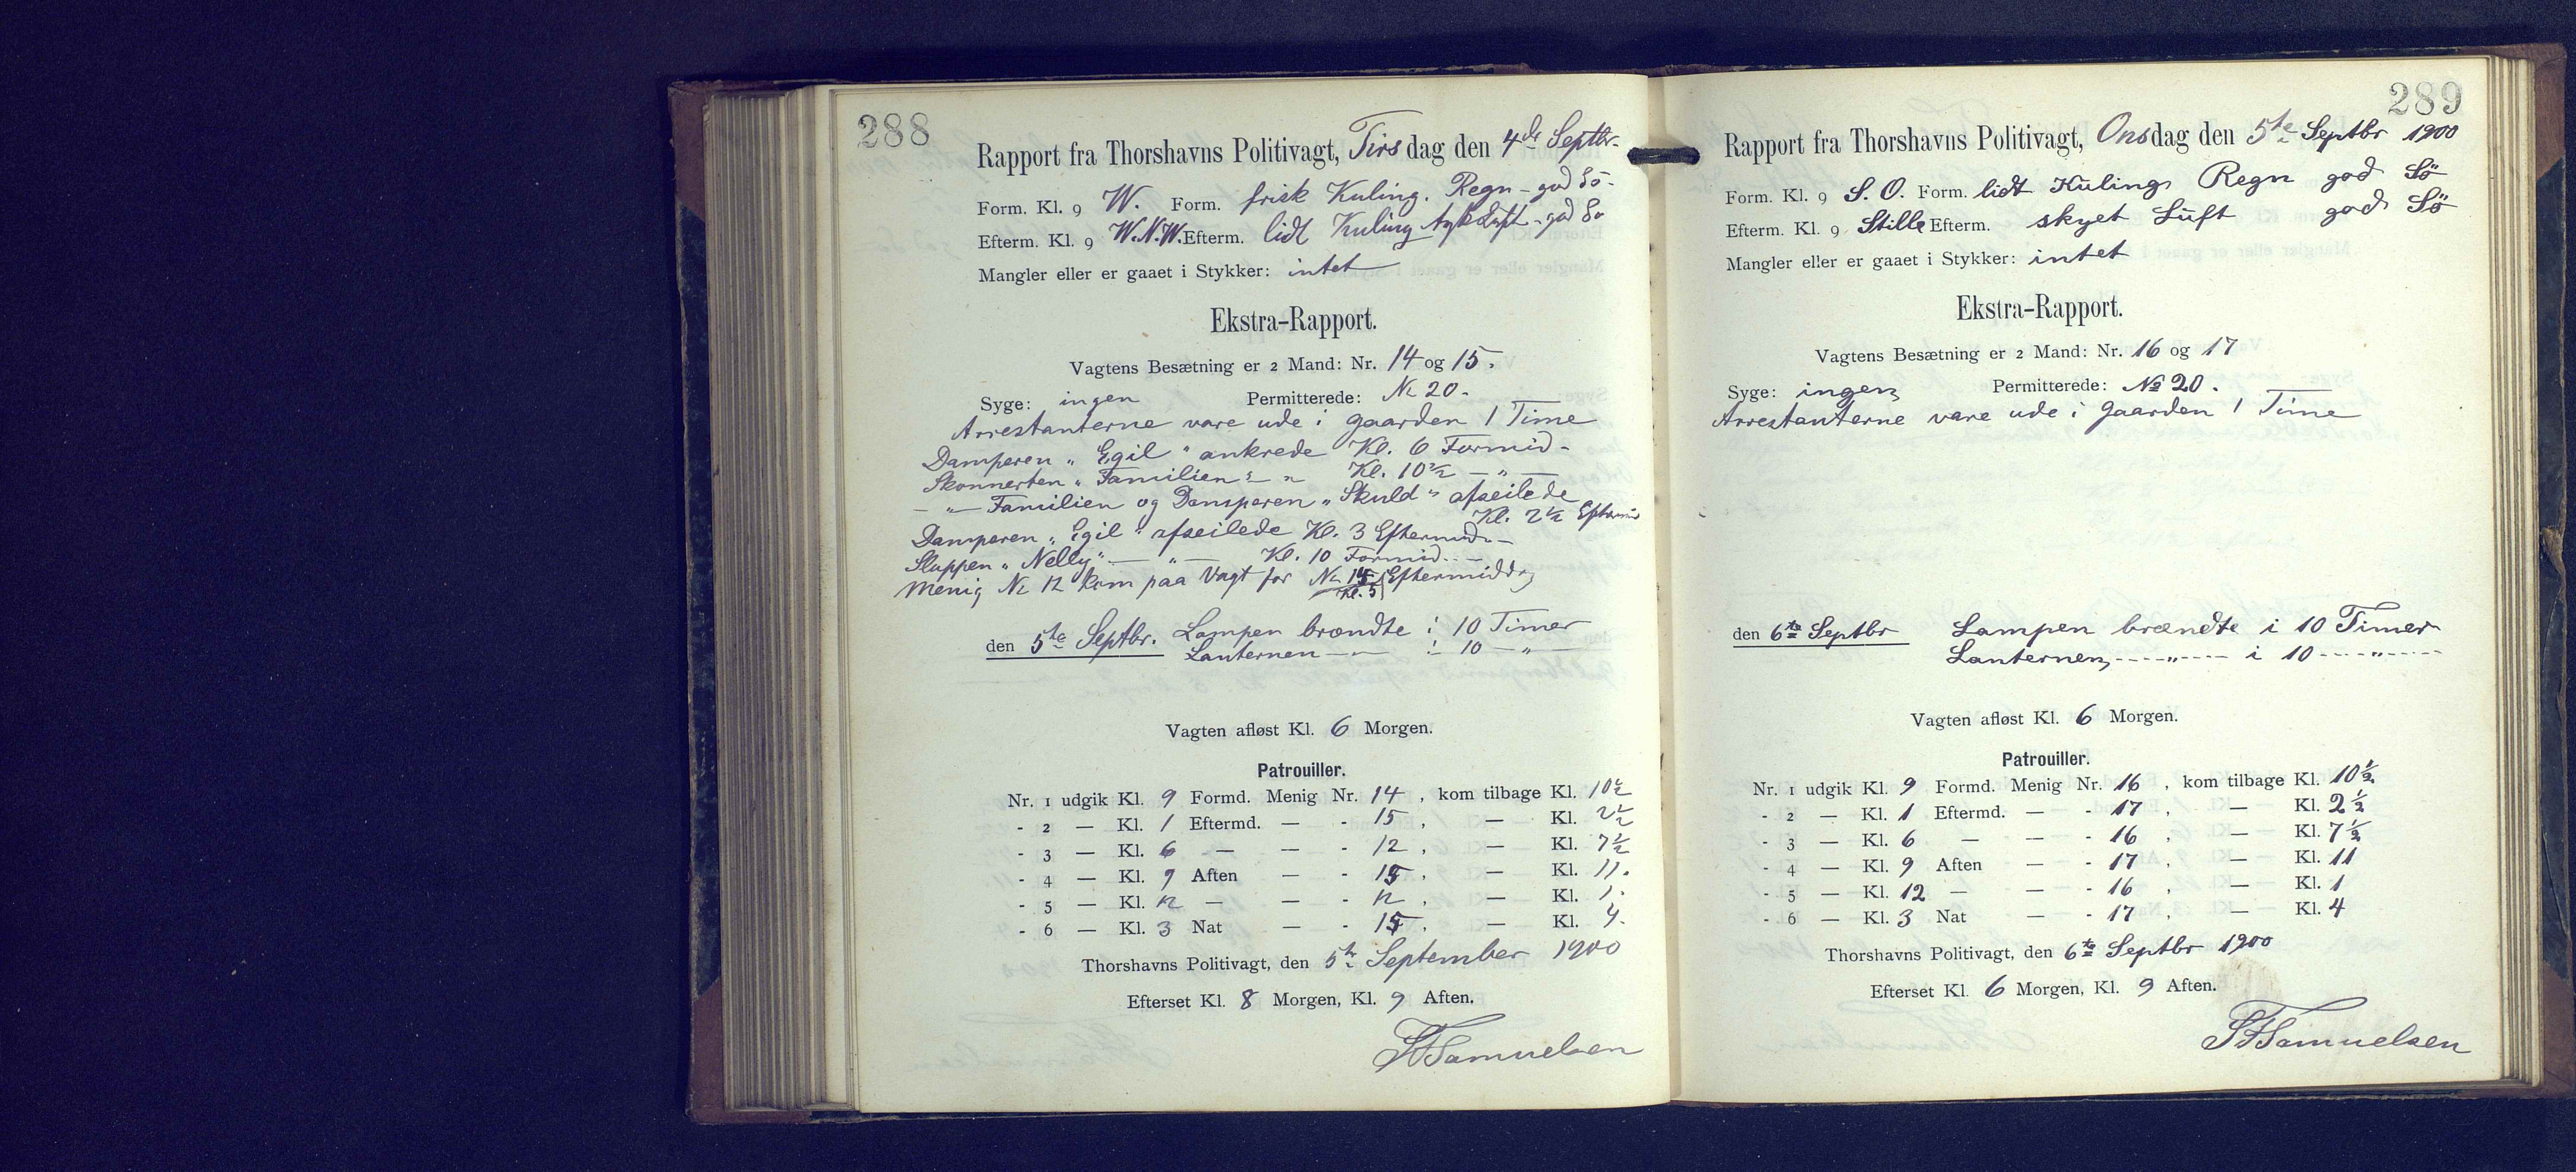 288
Rapport fra Thorshavns Politivagt, Tirsdag den 4de Septbr.
Form. Kl. 9 W. Form. frisk Kuling. Regn - god Sö -
Efterm. Kl. 9 W.N.W. Efterm. lidt Kuling tyk Luft - god Sö
Mangler eller er gaaet i Stykker: intet
Ekstra-Rapport.
Vagtens Besætning er 2 Mand: Nr. 14 og 15.
Syge: ingen Permitterede: No 20.
Arrestanterne vare ude i gaarden 1 Time
Damperen „Egil" ankrede Kl. 6 Formid-
Skonnerten „Familien" — " Kl. 10½ — " —
— " — Familien og Damperen „Skuld" afseilede
Kl. 2½ Eftermid
Damperen „Egil" afseilede Kl. 3 Eftermid. —
Sluppen „Nelly" — " — Kl. 10 Formid. —
Menig No 12 kom paa Vagt for No 14 Eftermiddag
Kl. 5
den 5te Septbr. Lampen brændte i 10 Timer
Lanternen — " — i 10 — " —
Vagten afløst Kl. 6 Morgen.
Patrouiller.
Nr. 1 udgik Kl. 9 Formd. Menig Nr. 14, kom tilbage Kl. 10½
- 2 — Kl. 1 Eftermd. — - 15, — Kl. 2½
- 3 — Kl. 6 — — - 12, — Kl. 7½
- 4 — Kl. 9 Aften — - 15, — Kl. 11.
- 5 — Kl. 12 — — - 12, — Kl. 1.
- 6 — Kl. 3 Nat — - 15, — Kl. 4.
Thorshavns Politivagt, den 5te September 1900
Efterset Kl. 8 Morgen, Kl. 9 Aften.
Samuelsen
289
Rapport fra Thorshavns Politivagt, Onsdag den 5te Septbr 1900
Form. Kl. 9 S.O. Form. lidt Kuling Regn god Sö
Efterm. Kl. 9 Stille Efterm. skyet Luft god Sö
Mangler eller er gaaet i Stykker: intet
Ekstra-Rapport.
Vagtens Besætning er 2 Mand: Nr. 16 og 17
Syge: ingen Permitterede: No 20.
Arrestanterne vare ude i gaarden 1 Time
den 6te Septbr Lampen brændte i 10 Timer
Lanternen, ---- " ---- i 10 ---- " ----
Vagten afløst Kl. 6 Morgen.
Patrouiller.
Nr. 1 udgik Kl. 9 Formd. Menig Nr. 16, kom tilbage Kl. 10½
- 2 — Kl. 1 Eftermd. — - 17, — Kl. 2½
- 3 — Kl. 6 — — - 16, — Kl. 7½
- 4 — Kl. 9 Aften — - 17, — Kl. 11
- 5 — Kl. 12 — — - 16, — Kl. 1
- 6 — Kl. 3 Nat — - 17, — Kl. 4
Thorshavns Politivagt, den 6te Septbr 1900
Efterset Kl. 6 Morgen, Kl. 9 Aften.
Samuelsen